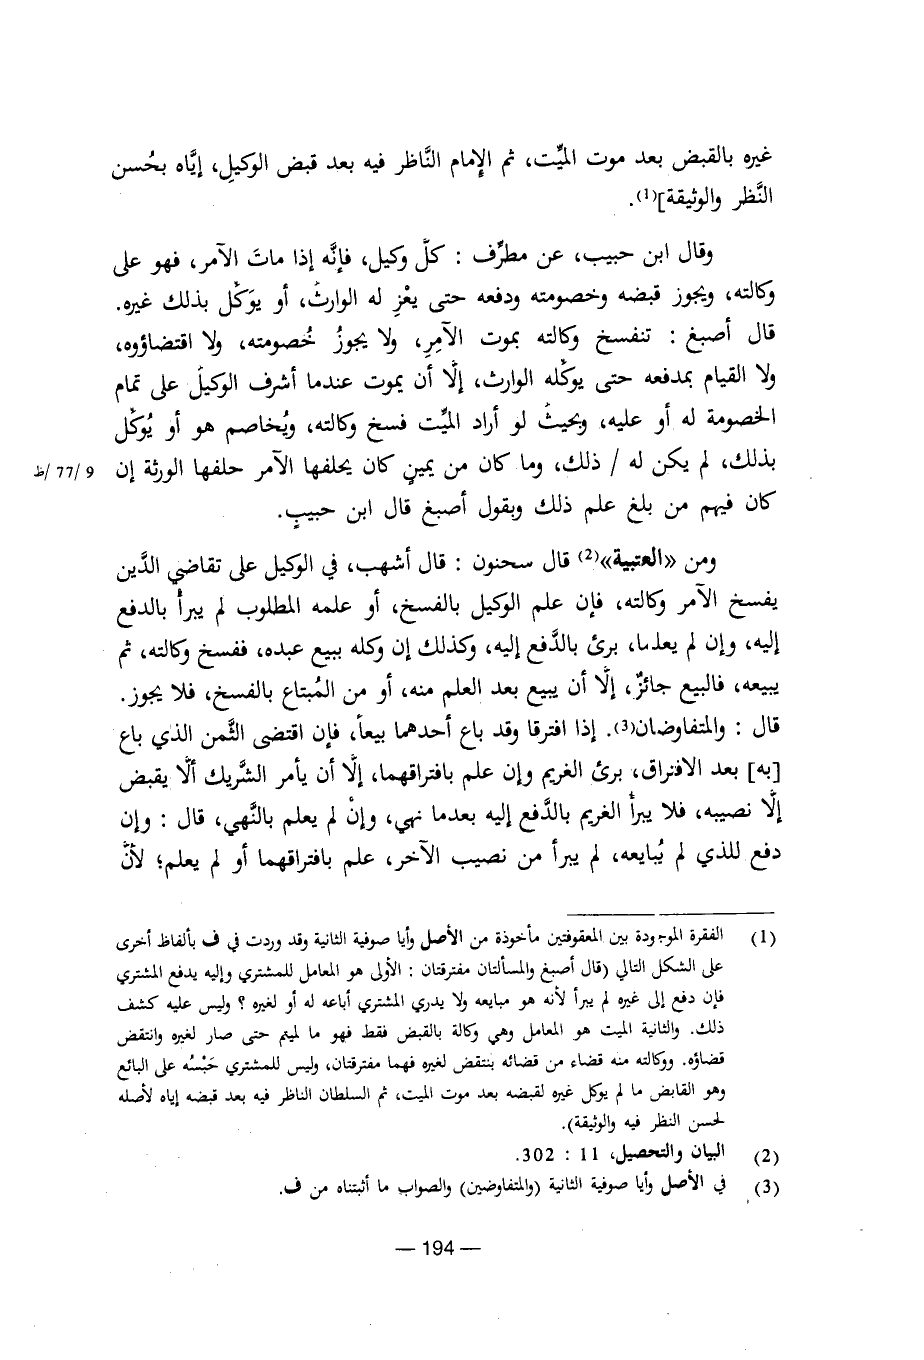 غيره بالقبض بعد موت الميِّت، ثم الإمام النَّاظر فيه بعد قبض الوكيلِ، إيَّاه بحُسن
النَّظر والوثيقة](1).
وقال ابن حبيب، عن مطرِّف : كلّ وكيل، فإنَّه إذا ماتَ الآمر، فهو على
وكالته، ويجوز قبضه وخصومته ودفعه حتى يعْزِ له الوارثُ، أو يوَكِّل بذلك غيره.
قال أصبغ : تنفسخ وكالته بموت الآمِرِ، ولا يجوزُ خُصومته، ولا اقتضاؤوه،
ولا القيام بمدفعه حتى يوكِّله الوارث، إلَّا أن يموت عندما أشرف الوكيلُ على تمام
الخصومة له أو عليه، وبحيثُ لو أراد الميِّت فسخ وكالته، ويُخاصم هو أو يُوكِّل
بذلك، لم يكن له / ذلك، وما كان من يمينٍ كان يحلفها الآمر حلفها الورثة إن
9 /77 /ظ
كان فيهم من بلغ علم ذلك وبقول أصبغ قال ابن حبيبٍ.
ومن «العتبية»(2) قال سحنون : قال أشهب، في الوكيل على تقاضي الدَّين
يفسخ الآمر وكالته، فإن علم الوكيل بالفسخ، أو علمه المطلوب لم يبرأ بالدفع
إليه، وإن لم يعلما، برئ بالدَّفع إليه، وكذلك إن وكله ببيع عبده، ففسخ وكالته، ثم
يبيعه، فالبيع جائزٌ، إلَّا أن يبيع بعد العلم منه، أو من المُبتاع بالفسخ، فلا يجوز.
قال : والمتفاوضان(3). إذا افترقا وقد باع أحدهما بيعاً، فإن اقتضى الثَّمن الذي باع
[به] بعد الافتراق، برئ الغريم وإن علم بافتراقهما، إلَّا أن يأمر الشَّريك ألَّا يقبض
إلَّا نصيبه، فلا يبرأ الغريم بالدَّفع إليه بعدما نهي، وإنْ لم يعلم بالنَّهي، قال : وإن
دفع للذي لم يُبايعه، لم يبرأ من نصيب الآخر، علم بافتراقهما أو لم يعلم؛ لأنَّ
(1) الفقرة الموجودة بين المعقوفتين مأخوذة من الأصل وأيا صوفية الثانية وقد وردت في ف بألفاظ أخرى
على الشكل التالي (قال أصبغ والمسألتان مفترقتان : الأولى هو المعامل للمشتري وإليه يدفع المشتري
فإن دفع إلى غيره لم يبرأ لأنه هو مبايعه ولا يدري المشتري أباعه له أو لغيره ؟ وليس عليه كشف
ذلك. والثانية الميت هو المعامل وهي وكالة بالقبض فقط فهو ما لميتم حتى صار لغيره وانتقض
قضاؤه. ووكالته منه قضاء من قضائه ينتقض لغيره فهما مفترقتان، وليس للمشتري حَبْسُه على البائع
وهو القابض ما لم يوكل غيره لقبضه بعد موت الميت، ثم السلطان الناظر فيه بعد قبضه إياه لأصله
لحسن النظر فيه والوثيقة).
(2) البيان والتحصيل، 11 : 302.
(3) في الأصل وأيا صوفية الثانية (والمتفاوضين) والصواب ما أثبتناه من ف.
— 194 —